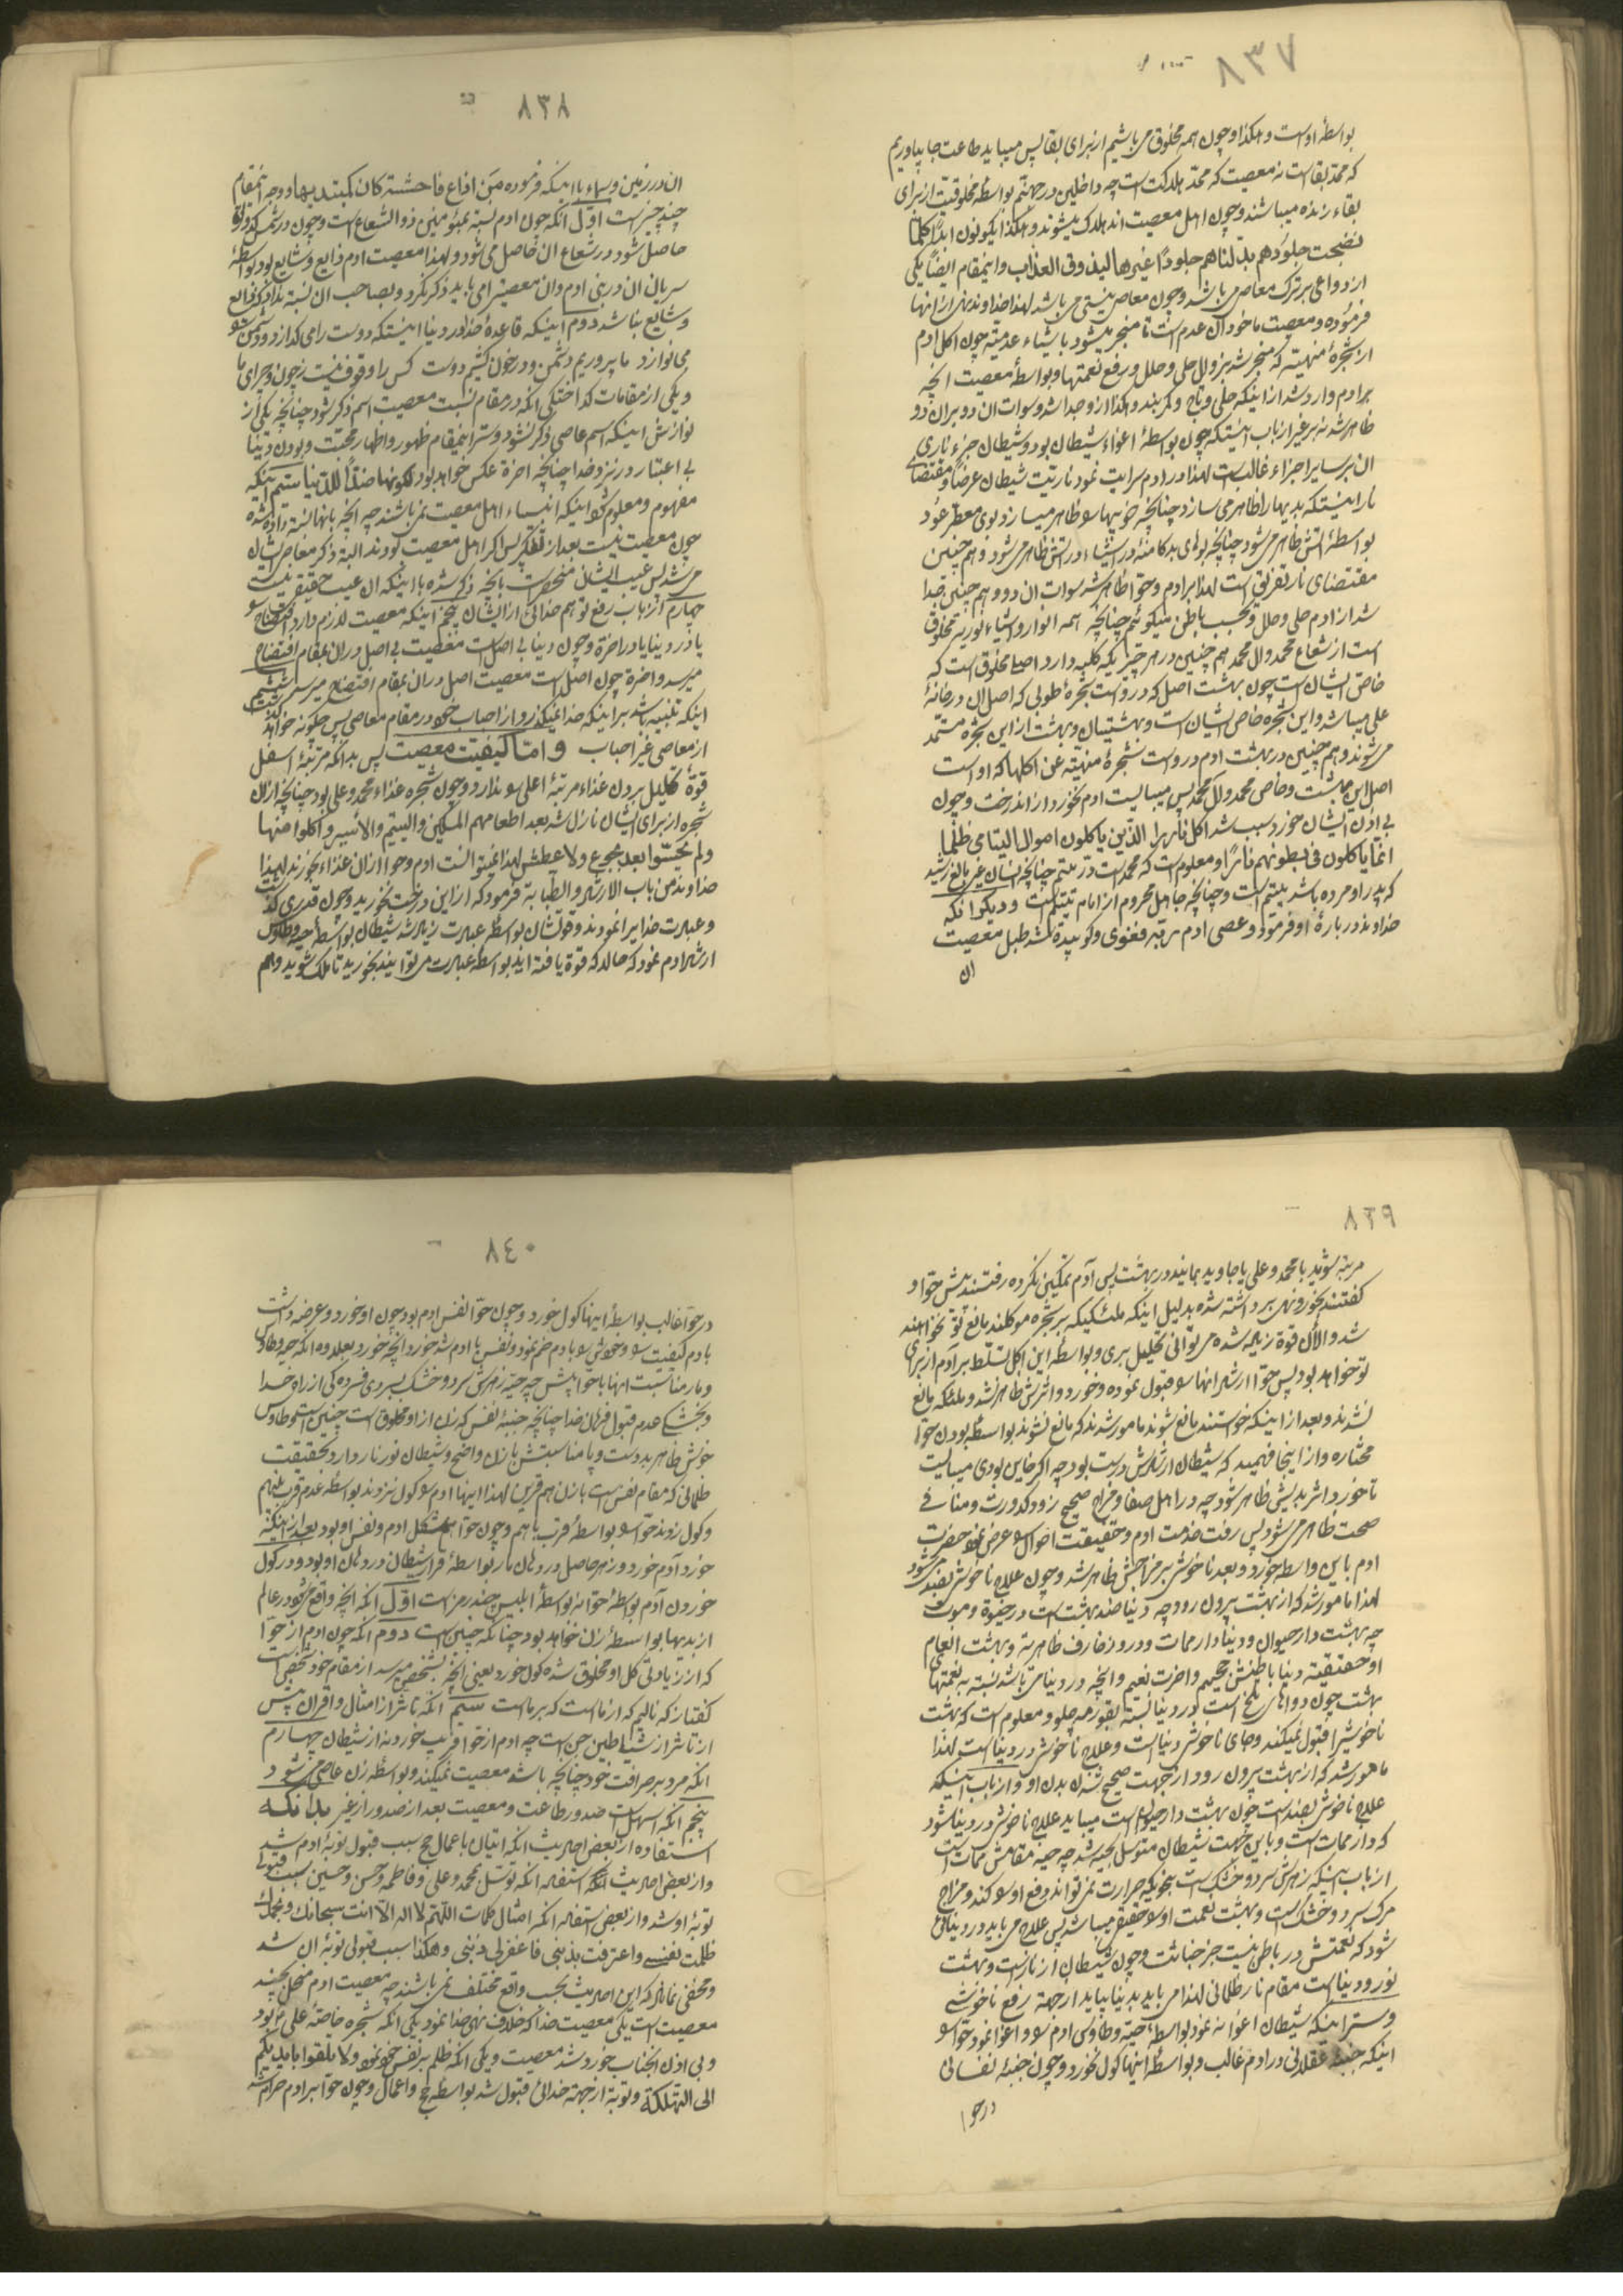 ٨٣٧
بواسطهٔ اوست و هکذا و چون همه مخلوق می باشیم از برای بقا پس میباید طاعت جا بیاوریم
که ممدّ بقاست نه معصیت که ممدّ هلاکت است چه داخلین در جهنّم بواسطهٔ مخلوقیّت از برای
بقاء زنده میباشند و چون اهل معصیت اند هلاک میشوند و هکذا یکونون ابداً کلما
نضجت جلودهم بدلناهم جلوداً غیرها لیذوقوا العذاب و اینمقام ایضاً یکی
از دواعی بر ترک معاصی می باشد و چون معاصی نیستی می باشد لهذا خداوند نهی از انها
فرموده و معصیت ماخوذ ان عدم است تا منجر میشود باشیاء عدمیّه چون اکل ادم
از شجرهٔ منهیّه که منجر شد بزوال حلی و حلل و رفع نعمتها و بواسطهٔ معصیت انچه
بر ادم وارد شد از اینکه حلی و تاج و کمربند و هکذا از او جدا شد و سوات ان دو بر ان دو
ظاهر شد نه بر غیر از باب اینستکه چون بواسطهٔ اغواء شیطان بود و شیطان جزء ناری
ان بر سایر اجزاء غالب است لهذا در ادم سرایت نمود ناریّت شیطان عرضاً و مقتضای
نار اینستکه بدیها را ظاهر می سازد چنانچه خوبیها را ظاهر میسازد بوی معطر عود
بواسطهٔ اتش ظاهر می شود چنانچه بوهای بد کامنه در اشیاء در اتش ظاهر می شود و هم چنین
مقتضای نار تفریق است لهذا بر ادم و حوا ظاهر شد سوات ان دو و هم چنین جدا
شد از ادم حلی و حلل و بحسب باطن میگوئیم چنانچه همه انوار و اشیاء نوریه مخلوق
است از شعاع محمد و ال محمد هم چنین در هر چیزیکه کلیه دارد اصلا مخلوق است که
خاصّ ایشان است چون بهشت اصل که در اوست شجرهٔ طوبی که اصل ان در خانهٔ
علی میباشد و این شجره خاص ایشان است و بهشتیان و بهشت از این شجره مستمد
می شوند و هم چنین در بهشت ادم در او است شجرهٔ منهیّه عن اکلها که او است
اصل این بهشت و خاص محمد و ال محمد پس میبایست ادم نخورد از ان درخت و چون
بی اذن ایشان خورد سبب شد اکل نار را الذین یاکلون اموال الیتامی ظلما
انما یاکلون فی بطونهم ناراً و معلوم است که محمد است در یتیم چنانچه انسان غیر بالغ رشید
که پدر او مرده باشد یتیم است و چنانچه جاهل محروم از امام یتیم است و دیگر انکه
خداوند در بارهٔ او فرمود و عصی ادم ربّه فغوی و کوبیده شد طبل معصیت
ان
٨٣٨
ان در زمین و سماء با اینکه فرموده من اذاع فاحشة کان کمبتدیها و وجه اینمقام
چند چیز است اوّل انکه چون ادم نسبة بمؤمنین ذو الشعاع است و چون در شمس
حاصل شود در شعاع ان حاصل می شود و لهذا معصیت ادم ذایع و شایع بود بواسطهٔ
سریان ان در بنی ادم و ان معصیترا می باید ذکر نکرد و بصاحب ان نسبة نداد که ذایع
و شایع نباشد دوم اینکه قاعدهٔ خدا در دنیا اینستکه دوست را می گدازد و دشمن را
می نوازد ما پروریم دشمن و در خون کشیم دوست کس را وقوف نیست ز چون و چرای ما
و یکی از مقامات گداختکی انکه در مقام نسبت معصیت اسم ذکر شود چنانچه یکی از
نوازش اینکه اسم عاصی ذکر نشود و ستر اینمقام ظهور و اظهار محبّت و بودن دنیا
بی اعتبار در نزد خدا چنانچه اخرة عکس خواهد بود لکونها ضداً للدنیا سیّم اینکه
مفهوم و معلوم شود اینکه انبیاء اهل معصیت نمی باشند چه انچه بانها نسبة داده شده
چون معصیت نیست بعد از تفکر پس اگر اهل معصیت بودند البته ذکر معاصی ایشان
می شد پس عیب ایشان منحصر است بانچه ذکر شده با اینکه ان عیب حقیقتی نیست
چهارم از باب رفع توهم خدائی از ایشان پنجم اینکه معصیت لازم دارد افتضاح را
یا در دنیا یا در اخرة و چون دنیا بی اصل است معصیت بی اصل در ان بمقام افتضاح
میرسد و اخرة چون اصل است معصیت اصل در ان بمقام افتضاح میرسد ششم
اینکه تنبیه باشد بر اینکه خدا نمیگذرد از احباب خود در مقام معاصی پس چگونه خواهد گذشت
از معاصی غیر احباب و امّا کیفیّت معصیت پس بدانکه مرتبهٔ اسفل
قوّة تحلیل بردن غذاء مرتبهٔ اعلی را ندارد و چون شجره غذاء محمد و علی بود چنانچه از ان
شجره از برای ایشان نازل شد بعد اطعامهم المسکین و الیتیم و الاسیر و اکلوا منها
و لم یحسّوا بعد بجوع و لا عطش لهذا نمیتوانست ادم و حوا از ان غذاء بخورند لهذا
خداوند من باب الارشاد و الطبابة فرمود که از این درخت نخورید و چون قدری گذشت
و عبادت خدا را نمودند و قوتشان بواسطهٔ عبادت زیاد شد شیطان بواسطهٔ حیّه و طاوس
ارشاد ادم نمود که حال که قوة یافته اید بواسطهٔ عبادت می توانید بخورید تا ملک شوید و هم
٨٣٩
مرتبه شوید با محمد و علی یا جاوید بمانید در بهشت پس آدم تمکین نکرده رفتند پیش حوّا و
گفتند بخور و نهی برداشته شده بدلیل اینکه ملئکهٔ که بر شجره موکلند مانع تو نخواهند
شد و الان قوة زیاد شده می توانی تحلیل بری و بواسطهٔ این اکل تسلّط بر آدم از برای
تو خواهد بود پس حوّا ارشاد انها را قبول نموده و خورد و اثرش ظاهر نشد و ملئکه مانع
نشدند و بعد از اینکه خواستند مانع شوند مامور شدند که مانع نشوند بواسطهٔ بودن حوّا
مختاره و از اینجا فهمید که شیطان ارشادش درست بود چه اگر خاین بودی میبایست
تا خورد اثر بدیش ظاهر شود چه در اهل صفا و مزاج صحیح زود کدورت و منافی
صحت ظاهر می شود پس رفت خدمت ادم و حقیقت احوال را عرض نمود حضرت
ادم باین واسطه خورد و بعد ناخوشی بر مزاجش ظاهر شد و چون علاج ناخوشی بضد می شود
لهذا مامور شد که از بهشت بیرون رود چه دنیا ضد بهشت است در حیوة و موت
چه بهشت دار حیوان و دنیا دار ممات و در او زخارف ظاهریّه و بهشت انعام
او حقیقیّه دنیا باطنش جحیم و اخرت نعیم و انچه در دنیا می باشد نسبة به نعمتهای
بهشت چون دواهای تلخ است در دنیا نسبة بقورمه چلو و معلوم است که بهشت
ناخوشیرا قبول نمیکند و جای ناخوشی دنیا است و علاج ناخوشی در دنیا است لهذا
مامور شد که از بهشت بیرون رود از جهت صحیح شدن بدن او و از باب اینکه
علاج ناخوشی بضد است چون بهشت دار حیوان است میباید علاج ناخوشی در دنیا شود
که دار ممات است و باین جهت شیطان متوسل بحیّه شد چه حیّه مقامش ممات است
از باب اینکه زهرش سرد و خشک است بنحویکه حرارت نمی تواند دفع او را کند و مزاج
مرگ سرد و خشک است و بهشت نعمت او حقیقی میباشد پس علاج می باید در دنیائی
شود که نعمتش در باطن نیست جز خباثت و چون شیطان از نار است و بهشت
نور و دنیا است مقام نار ظلمانی لهذا می باید بدنیا بیاید از جهة رفع ناخوشی
و ستر اینکه شیطان اغوا نه نمود بواسطهٔ حیّه و طاوس ادم را و اغوا نمود حوّا را
اینکه جنبهٔ عقلانی در ادم غالب و بواسطهٔ اینها گول نخورد و چون جنبهٔ نفسانی
در حوا
٨٤٠
در حوّا غالب بواسطهٔ اینها گول خورد و چون حوّا نفس ادم بود چون او خورد و عرضه داشت
بادم کیفیت را و خودش را با ادم ضم نمود و نفس با ادم شد خورد انچه خورد بعلاوه انکه حیّه و طاوس
و مار مناسبت انها با حوّا بیش چه حیّه زهرش سرد و خشک بسردی فسردگی از راه خدا
و بخشکی عدم قبول فرمان خدا چنانچه جنبهٔ نفس که زن از او مخلوق است چنین است و طاوس
خوش ظاهر بد دست و پا مناسبتش با زن واضح و شیطان نور نار دارد و حقیقت
ظلمانی که مقام نفس است با زن هم قرین لهذا اینها ادم را گول نزدند بواسطهٔ عدم قرب بهم
و گول زدند حوّا را بواسطهٔ قرب باهم و چون حوّا شکل ادم و نفس او بود بعد از اینکه
خورد آدم خورد و زهر حاصل در دهان مار بواسطهٔ قرار شیطان در دهان او بود و در گول
خوردن آدم بواسطهٔ حوّا نه بواسطهٔ ابلیس چند رمز است اوّل انکه انچه واقع می شود در عالم
از بدیها بواسطهٔ زن خواهد بود چنانکه چنین است دوم انکه چون ادم از حوّا
که از زیادتی گل او مخلوق شده گول خورد یعنی انچه بشخص میرسد از مقام خود شخص است
گفتا ز که نالیم که از ماست که بر ماست سیّم انکه تاثر از امثال و اقران بیش
از تاثر از شیاطین جن است چه ادم از حوّا فریب خورد نه از شیطان چهارم
انکه مرد بر صرافت خود چنانچه باشد معصیت نمیکند و بواسطهٔ زن عاصی می شود
پنجم انکه اسهل است صدور طاعت و معصیت بعد از صدور از غیر بدانکه
استفاده از بعض احادیث انکه اتیان باعمال حج سبب قبول توبهٔ ادم شد
و از بعض احادیث استفاده انکه توسّل بمحمد و علی و فاطمه و حسن و حسین سبب قبول
توبهٔ او شد و از بعض استفاده انکه امثال کلمات اللّهم لا اله الّا انت سبحانک و بحمدک
ظلمت نفسی و اعترفت بذنبی فاغفر لی ذنبی و هکذا سبب قبولی توبهٔ ان شد
و مخفی نماند که این احادیث بحسب واقع مختلف نمی باشند چه معصیت ادم منحل بچند
معصیت است یکی معصیت خدا که خلاف نهی خدا نمود یکی انکه شجره خاصّهٔ علی بود
و بی اذن انجناب خورد شد معصیت و یکی انکه ظلم بر نفس خود نمود و لا تلقوا بایدیکم
الی التهلکة و توبه از جهة خدائی قبول شد بواسطهٔ حج و اعمال و چون حوّا بر ادم حرام شد